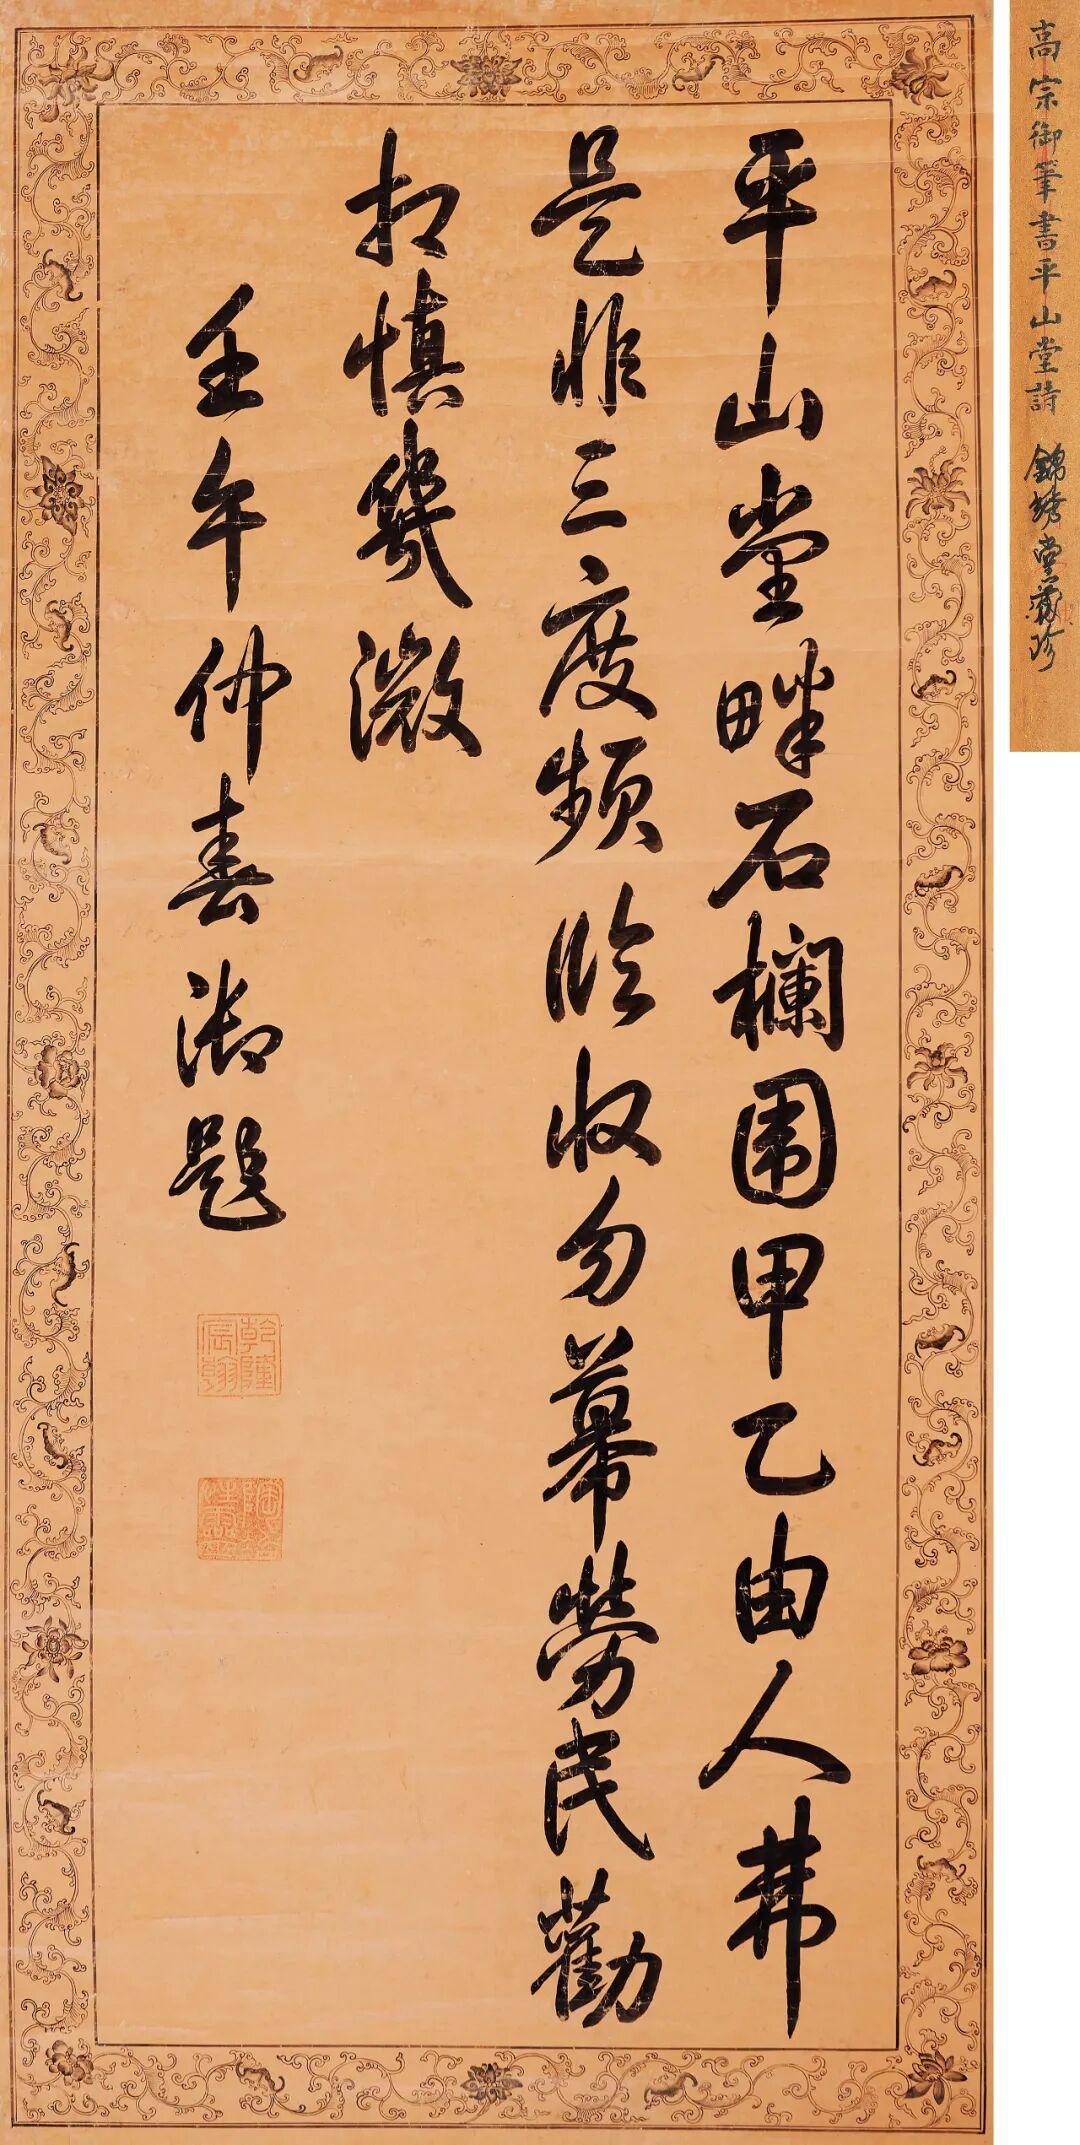 平山堂畔石欄圍甲乙由人弗
是非三度頻臨收勿幕勞民勸
相慎幾微
壬午仲春御題
乾隆宸翰
高宗御筆書平山堂詩 錦綉堂藏珍